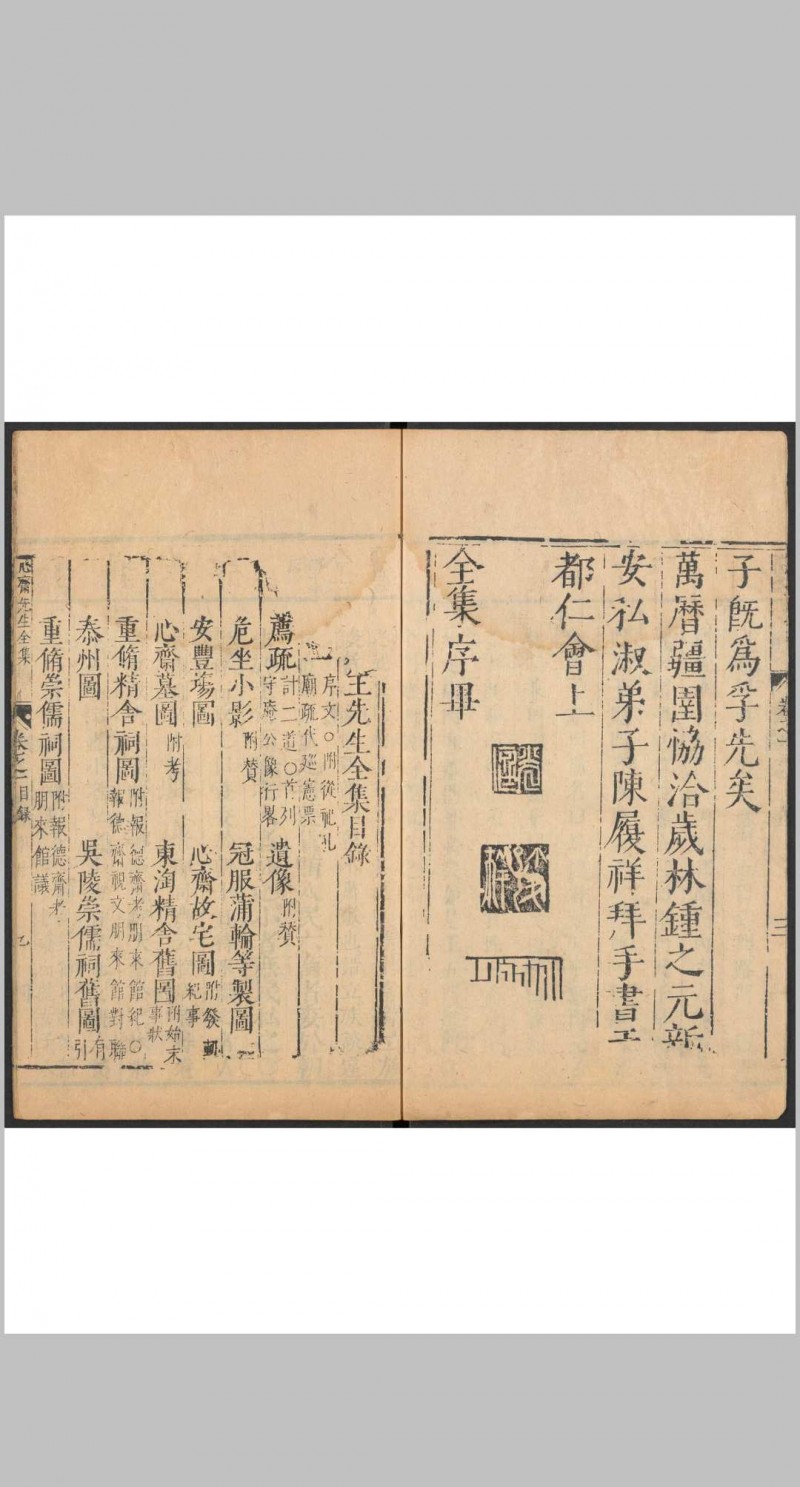 子旣爲孚先矣
萬曆疆圉恊洽歲林鍾之元新
安私淑弟子陳履祥拜手書于
都仁會上
全集序畢
三
王先生全集目錄
序文○附從祀
廟疏代廵憲票
薦疏 計二道○首列
守庵公像行畧 遺像 附賛
危坐小影 附賛 冠服蒲輪等製圖
安豐塲圖 心齋故宅圖 附發
紀事
心齋墓圖 附考 東淘精舎舊圖 附始末
事狀
重脩精舎祠圖 附報德齋考朋來館祀○
報德齋祝文朋來館對聯
泰州圖 吳陵崇儒祠舊圖 有
引
重脩崇儒祠圖 附報德齋考
朋來館議
心齋先生全集 卷之一目錄 乙